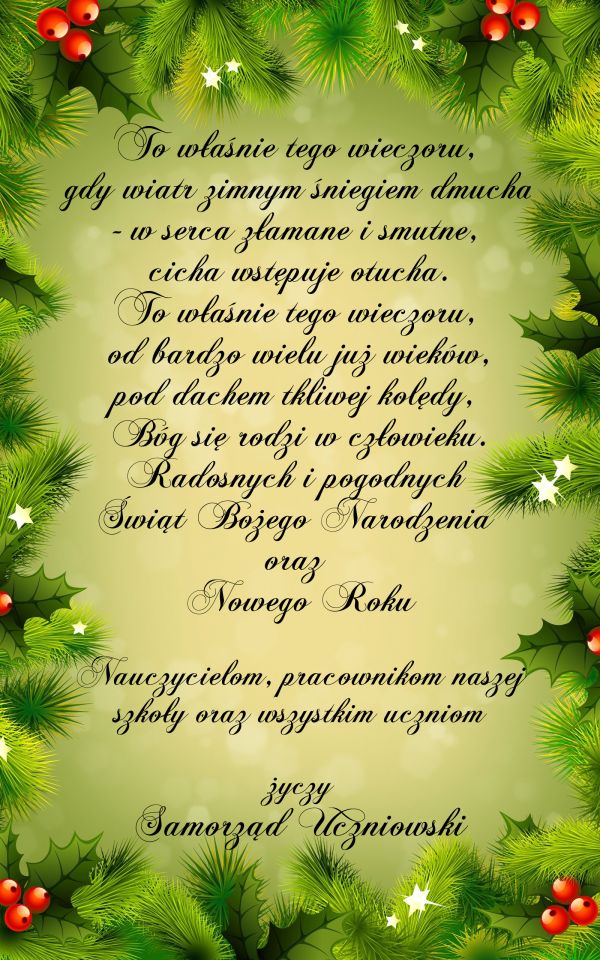 To właśnie tego wieczoru,
gdy wiatr zimnym śniegiem dmucha
- w serca złamane i smutne,
cicha wstępuje otucha.
To właśnie tego wieczoru,
od bardzo wielu już wieków,
pod dachem tkliwej kolędy,
Bóg się rodzi w człowieku.
Radosnych i pogodnych
Świąt Bożego Narodzenia
oraz
Nowego Roku
Nauczycielom, pracownikom naszej
szkoły oraz wszystkim uczniom
życzy
Samorząd Uczniowski